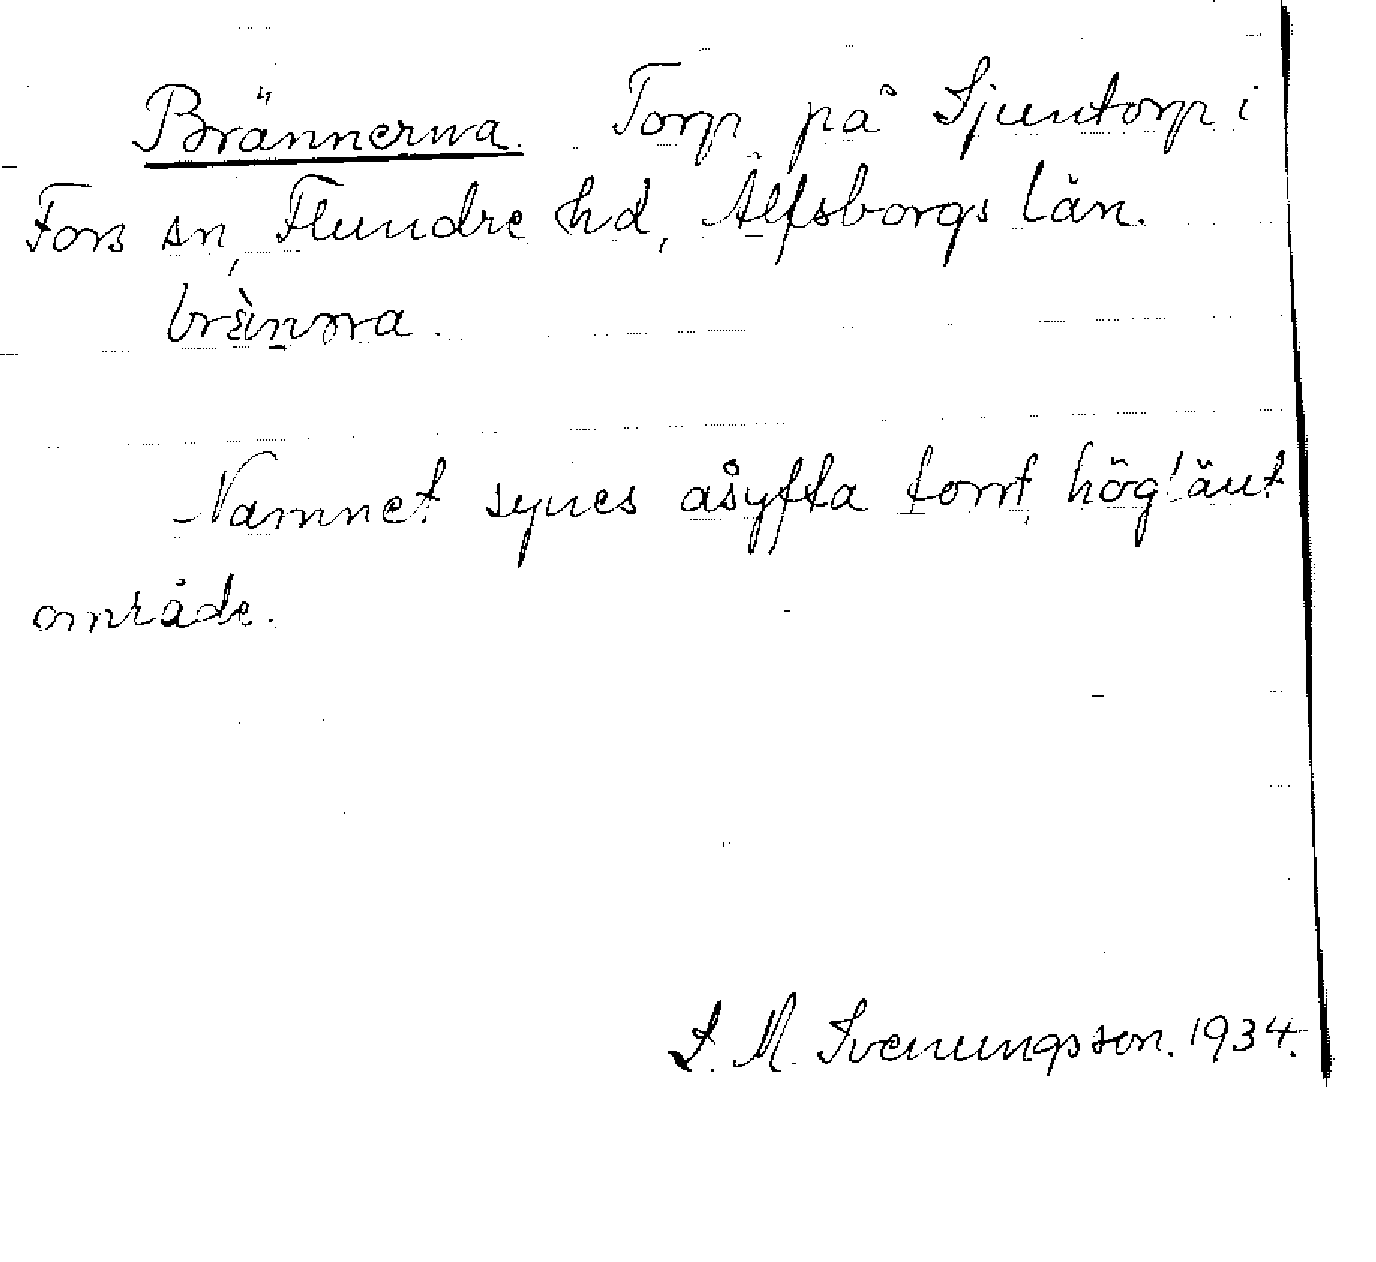 Brännerna. Torp på Sjuntorp i
Fors sn, Flundre hd, Älfsborgs län.
Namnet synes åsyfta torrt, högläut
område.
S. M. Svenungsson. 1934.